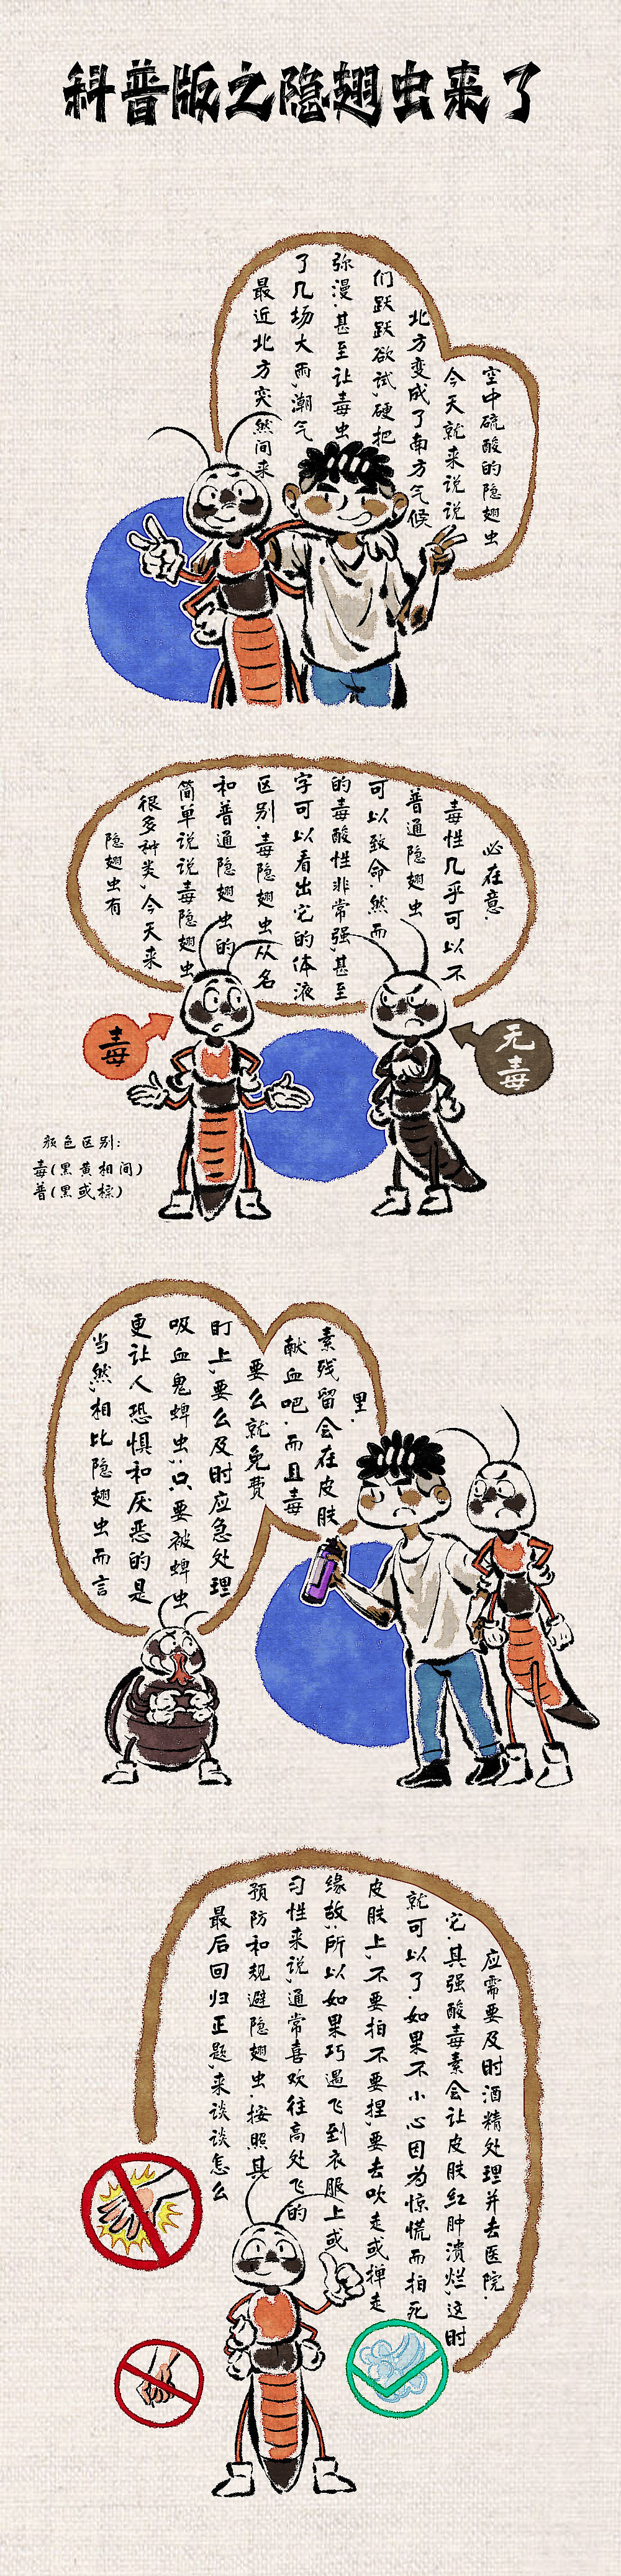 科普版之隐翅虫来了
最近北方突然间来
了几场大雨,潮气
弥漫.甚至让毒虫
们跃跃欲试,硬把
北方变成了南方气候
今天就来说说
空中硫酸的隐翅虫
隐翅虫有
很多种类,今天来
简单说说毒隐翅虫
和普通隐翅虫的
区别.毒隐翅虫从名
字可以看出它的体液
的毒酸性非常强,甚至
可以致命.然而
普通隐翅虫
毒性几乎可以不
必在意.
毒
无毒
颜色区别:
毒(黑黄相间)
普(黑或棕)
当然,相比隐翅虫而言
更让人恐惧和厌恶的是
吸血鬼蜱虫;只要被蜱虫
盯上,要么及时应急处理
要么就免费
献血吧.而且毒
素残留会在皮肤
里.
最后回归正题,来谈谈怎么
预防和规避隐翅虫.按照其
习性来说,通常喜欢往高处飞的
缘故;所以如果巧遇飞到衣服上或
皮肤上,不要拍不要捏,要去吹走或掸走
就可以了.如果不小心因为惊慌而拍死
它.其强酸毒素会让皮肤红肿溃烂,这时
应需要及时酒精处理并去医院.